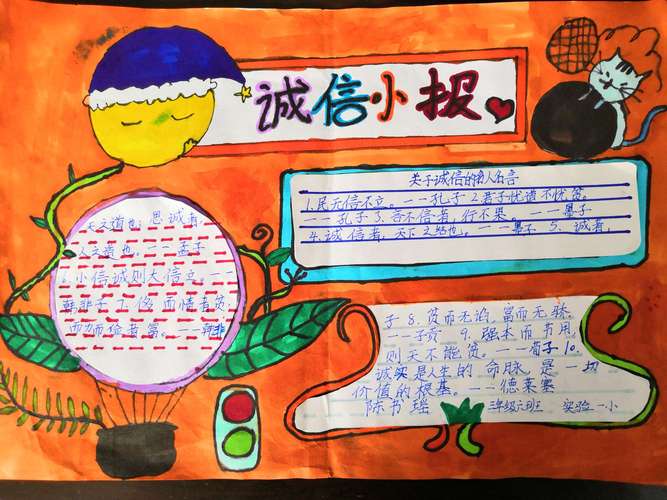 诚信小报
关于诚信的名人名言
1.民无信不立。——孔子 2.君子忧道不忧贫。
——孔子 3.言不信者,行不果。——墨子
4.诚信者,天下之结也。——墨子 5.诚者,
天之道也;思诚者
人之道也。——孟子
6.小信诚则大信立。——
韩非子 7.侈而惰者贫,
而力而俭者富。——韩非
子 8.贫而无谄,富而无骄
——子贡 9.强本而节用,
则天不能贫。——荀子 10.
诚实是人生的命脉,是一切
价值的根基。——德莱塞
陈书瑶 三年级六班 实验一小